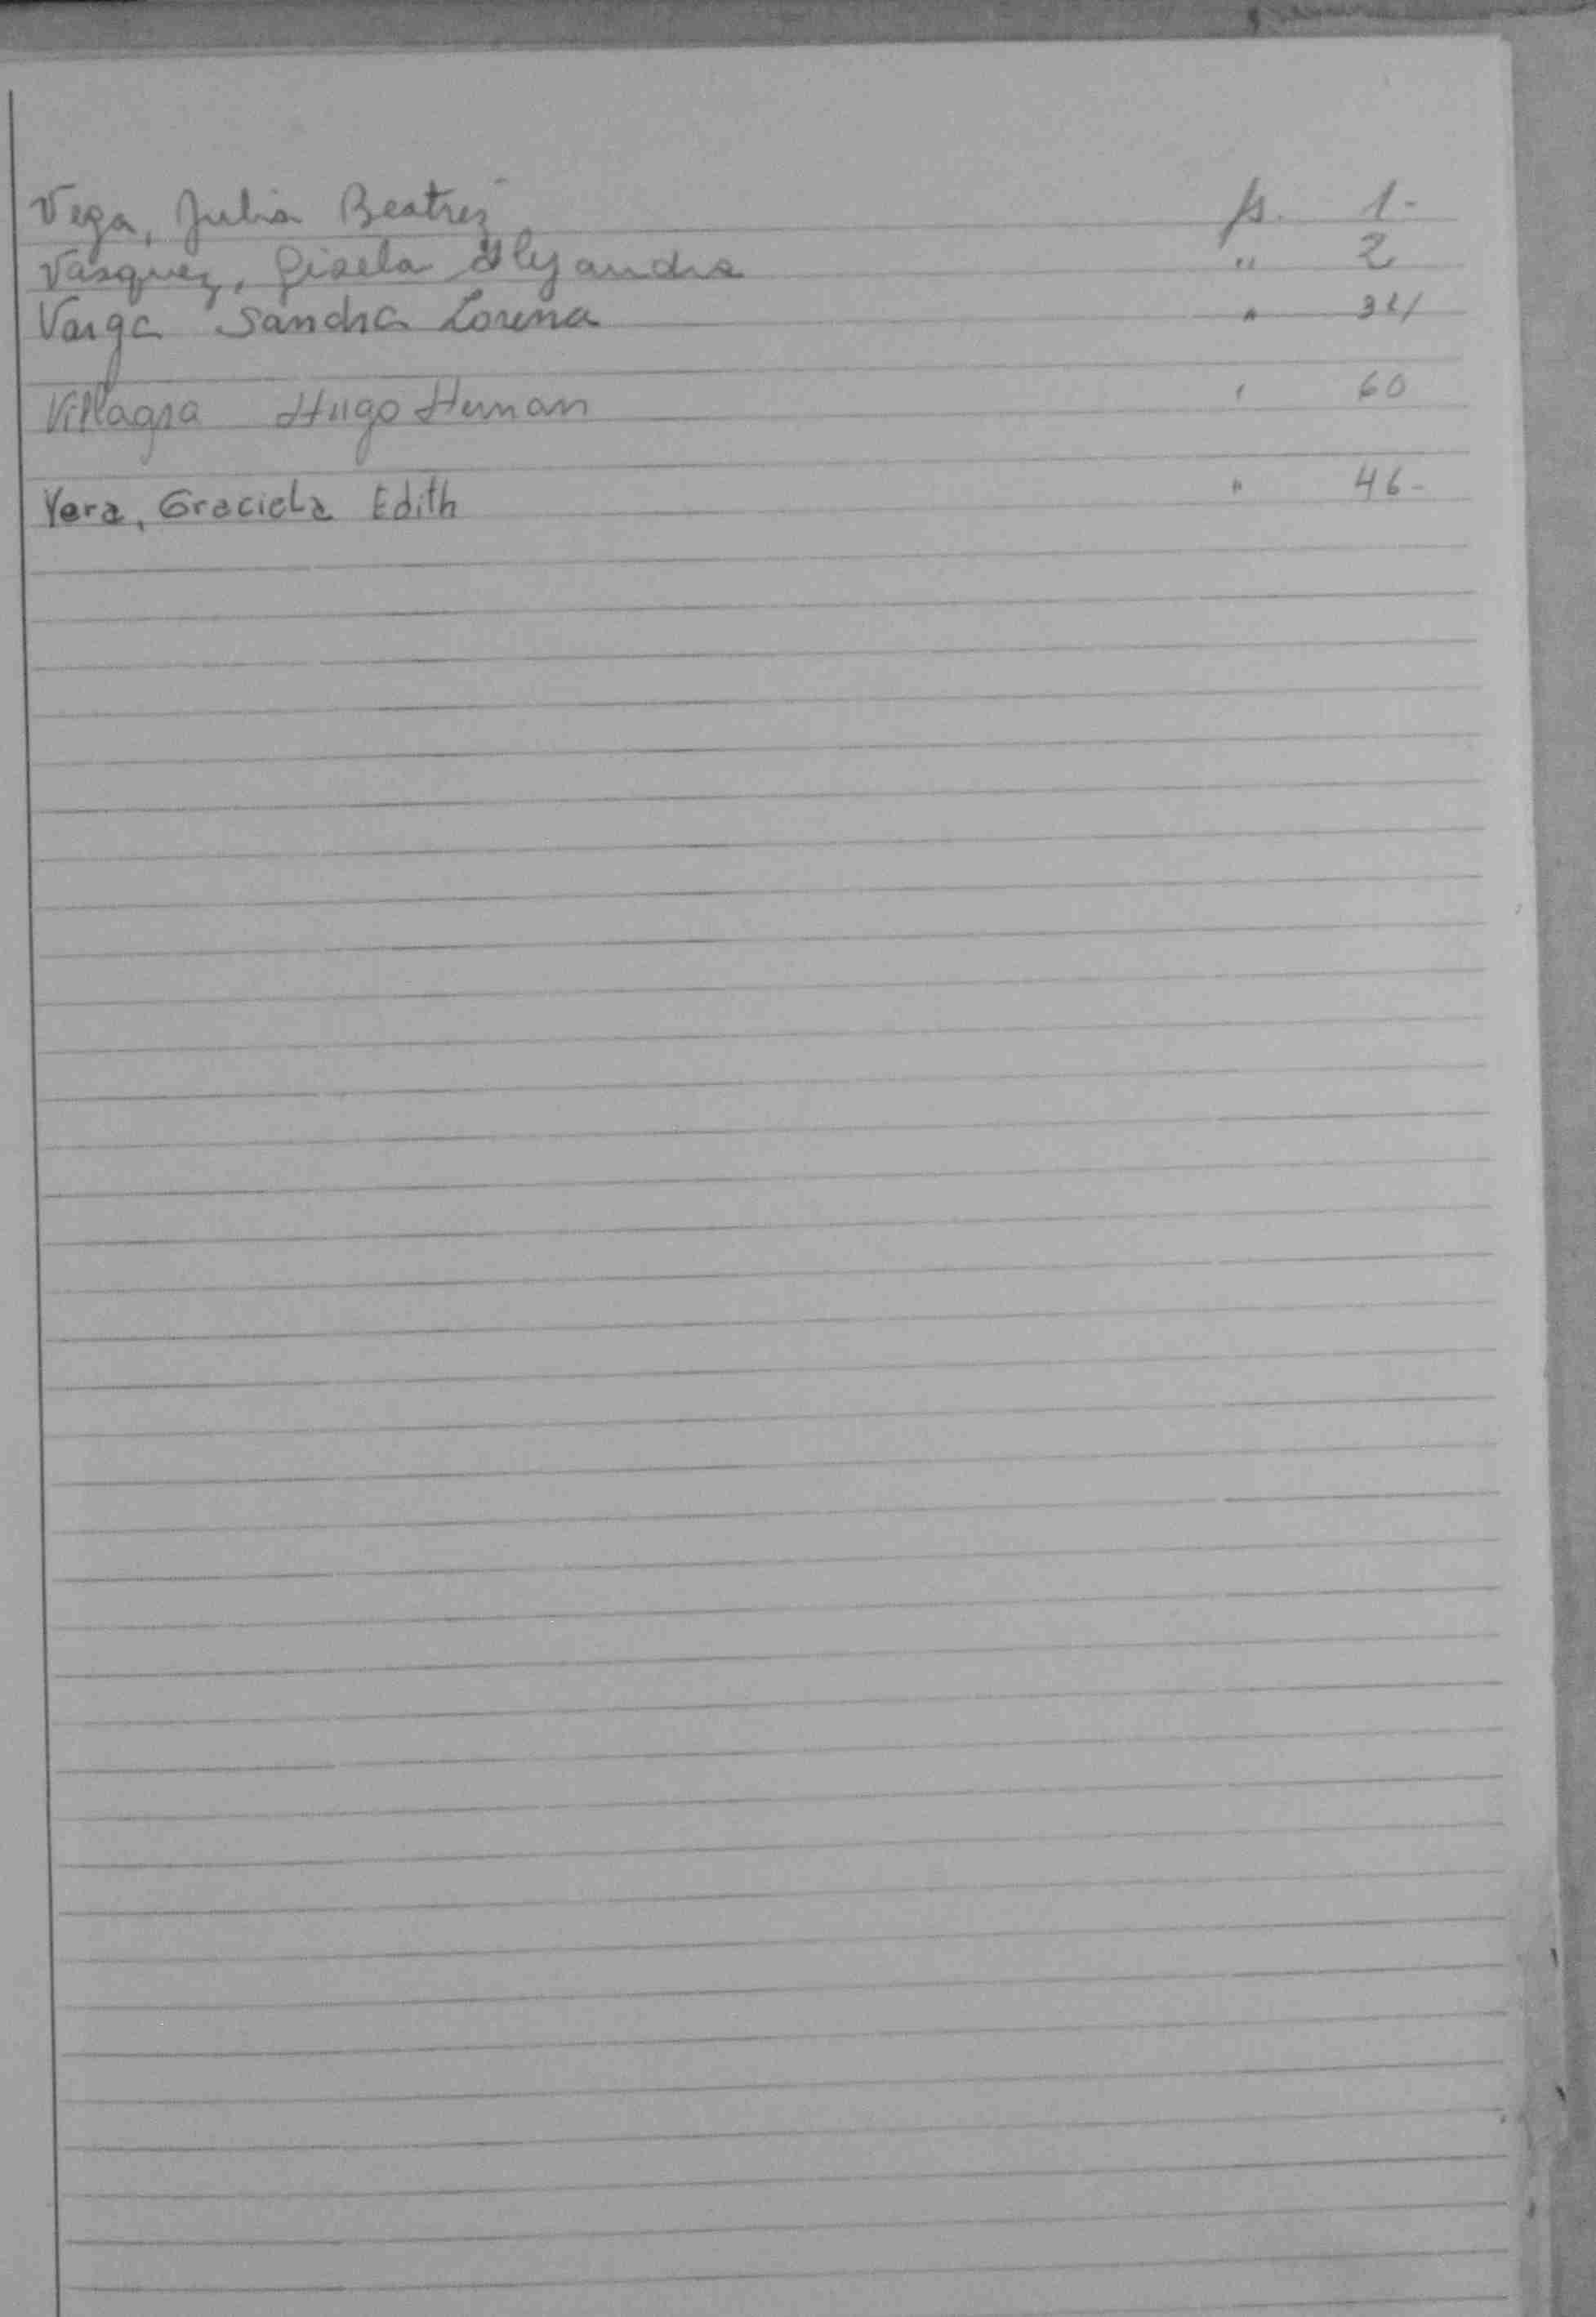 Vega, Julia Beatriz fs. 1-
Vasquez, Gisela Alejandra " 2
Varga Sandra Lorena "
Villagra Hugo Hernan " 60
Vera, Graciela Edith " 46-